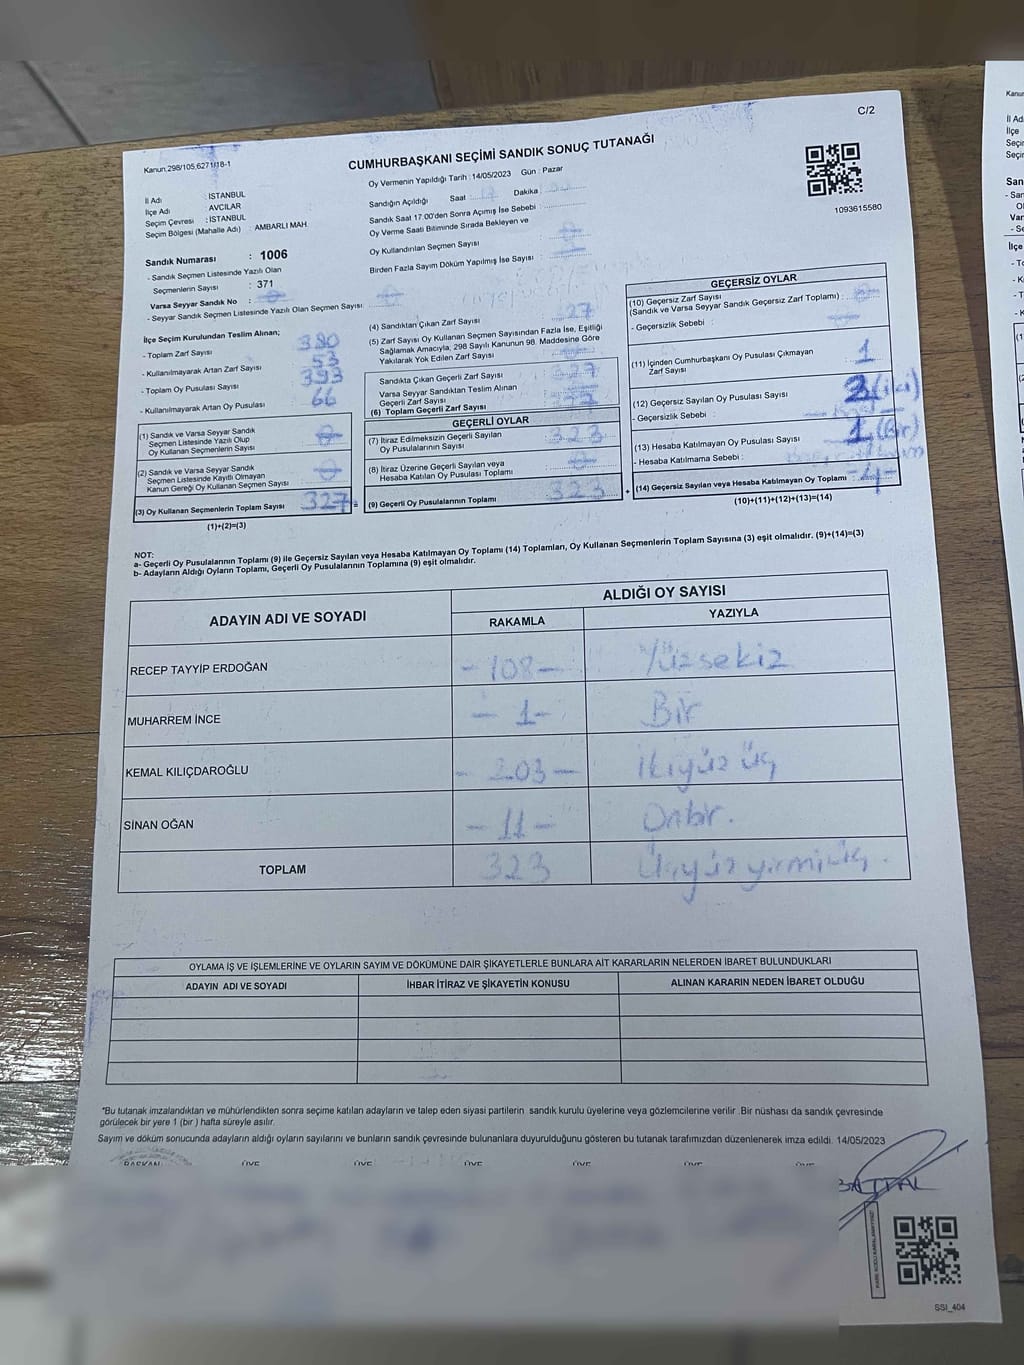 C/2
Kanun,298/105,6271/18-1
CUMHURBAŞKANI SEÇİMİ SANDIK SONUÇ TUTANAĞI
Oy Vermenin Yapıldığı Tarih : 14/05/2023 Gün : Pazar
1093615580
İl Adı : İSTANBUL
İlçe Adı : AVCILAR
Seçim Çevresi : İSTANBUL
Seçim Bölgesi (Mahalle Adı) : AMBARLI MAH.
Sandığın Açıldığı Saat : Dakika :
Sandık Saat 17.00'den Sonra Açımış İse Sebebi :
Oy Verme Saati Bitiminde Sırada Bekleyen ve
Oy Kullandırılan Seçmen Sayısı :
Birden Fazla Sayım Döküm Yapılmış İse Sayısı :
Sandık Numarası : 1006
- Sandık Seçmen Listesinde Yazılı Olan
Seçmenlerin Sayısı : 371
Varsa Seyyar Sandık No :
- Seyyar Sandık Seçmen Listesinde Yazılı Olan Seçmen Sayısı :
İlçe Seçim Kurulundan Teslim Alınan;
- Toplam Zarf Sayısı 380
- Kullanılmayarak Artan Zarf Sayısı 53
- Toplam Oy Pusulası Sayısı 393
- Kullanılmayarak Artan Oy Pusulası 66
(1) Sandık ve Varsa Seyyar Sandık
Seçmen Listesinde Yazılı Olup
Oy Kullanan Seçmenlerin Sayısı
(2) Sandık ve Varsa Seyyar Sandık
Seçmen Listesinde Kayıtlı Olmayan
Kanun Gereği Oy Kullanan Seçmen Sayısı
(3) Oy Kullanan Seçmenlerin Toplam Sayısı 327 =
(1)+(2)=(3)
(4) Sandıktan Çıkan Zarf Sayısı : 327
(5) Zarf Sayısı Oy Kullanan Seçmen Sayısından Fazla İse, Eşitliği
Sağlamak Amacıyla, 298 Sayılı Kanunun 98. Maddesine Göre
Yakılarak Yok Edilen Zarf Sayısı
Sandıkta Çıkan Geçerli Zarf Sayısı : 327
Varsa Seyyar Sandıktan Teslim Alınan
Geçerli Zarf Sayısı
(6) Toplam Geçerli Zarf Sayısı 327
GEÇERLİ OYLAR
(7) İtiraz Edilmeksizin Geçerli Sayılan
Oy Pusulalarının Sayısı : 323
(8) İtiraz Üzerine Geçerli Sayılan veya
Hesaba Katılan Oy Pusulası Toplamı
(9) Geçerli Oy Pusulalarının Toplamı 323 +
GEÇERSİZ OYLAR
(10) Geçersiz Zarf Sayısı
(Sandık ve Varsa Seyyar Sandık Geçersiz Zarf Toplamı) :
- Geçersizlik Sebebi :
(11) İçinden Cumhurbaşkanı Oy Pusulası Çıkmayan
Zarf Sayısı 1
(12) Geçersiz Sayılan Oy Pusulası Sayısı 2 (iki)
- Geçersizlik Sebebi :
(13) Hesaba Katılmayan Oy Pusulası Sayısı 1 (Bir)
- Hesaba Katılmama Sebebi :
(14) Geçersiz Sayılan veya Hesaba Katılmayan Oy Toplamı : -4-
(10)+(11)+(12)+(13)=(14)
NOT:
a- Geçerli Oy Pusulalarının Toplamı (9) ile Geçersiz Sayılan veya Hesaba Katılmayan Oy Toplamı (14) Toplamları, Oy Kullanan Seçmenlerin Toplam Sayısına (3) eşit olmalıdır. (9)+(14)=(3)
b- Adayların Aldığı Oyların Toplamı, Geçerli Oy Pusulalarının Toplamına (9) eşit olmalıdır.
ADAYIN ADI VE SOYADI
ALDIĞI OY SAYISI
RAKAMLA YAZIYLA
RECEP TAYYİP ERDOĞAN -108- Yüzsekiz
MUHARREM İNCE -1- Bir
KEMAL KILIÇDAROĞLU -203- İkiyüz üç
SİNAN OĞAN -11- Onbir.
TOPLAM 323 Üçyüz yirmiüç.
OYLAMA İŞ VE İŞLEMLERİNE VE OYLARIN SAYIM VE DÖKÜMÜNE DAİR ŞİKAYETLERLE BUNLARA AİT KARARLARIN NELERDEN İBARET BULUNDUKLARI
ADAYIN ADI VE SOYADI İHBAR İTİRAZ VE ŞİKAYETİN KONUSU ALINAN KARARIN NEDEN İBARET OLDUĞU
*Bu tutanak imzalandıktan ve mühürlendikten sonra seçime katılan adayların ve talep eden siyasi partilerin sandık kurulu üyelerine veya gözlemcilerine verilir .Bir nüshası da sandık çevresinde
görülecek bir yere 1 (bir ) hafta süreyle asılır.
Sayım ve döküm sonucunda adayların aldığı oyların sayılarını ve bunların sandık çevresinde bulunanlara duyurulduğunu gösteren bu tutanak tarafımızdan düzenlenerek imza edildi. 14/05/2023
BAŞKAN ÜYE ÜYE ÜYE ÜYE ÜYE ÜYE
BATTAL
SSI_404